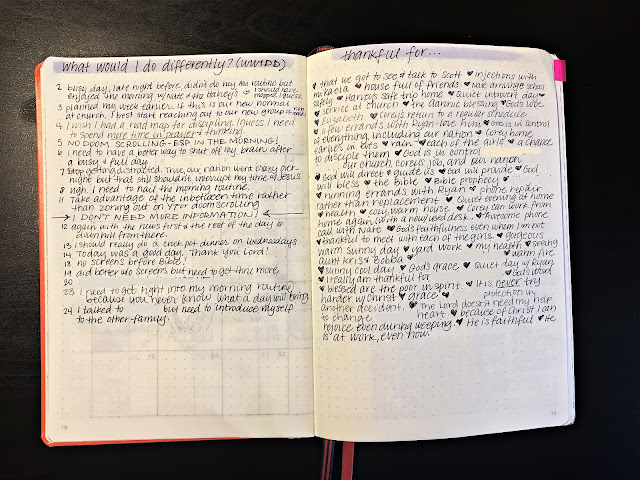 what would I do differently? (WWIDD)
2 busy day, late night before. didn't do my AM routine but
enjoyed the morning w/Nate & the
3 planned my week earlier. If this is our new normal
at church, I best start reaching out to our new group of
4 I wish I had a road map for discipling. I guess I need
to spend more time in prayer & thinking.
5 NO DOOM SCROLLING - ESP IN THE MORNING!
6 I need to have a better way to shut off my brain after
a busy & full day.
7 Stop getting distracted. True, our nation went crazy last
night but that still shouldn't interrupt my time w/Jesus
8 ugh. I need to nail the morning routine.
11 Take advantage of the inbetween time rather
than zoning out on YT or doom scrolling
I DON'T NEED MORE INFORMATION!
12 again with the news first & the rest of the day is
downhill from there.
13 I should really do a crock pot dinner on Wednesdays
14 Today was a good day. Thank you Lord!
18 no screens before Bible!
19 did better w/o screens but need to get thru more.
20
23 I need to get right into my morning routine
because you never know what a day will bring
24 I talked to but need to introduce myself
to the other family.
thankful for...
that we got to see & talk to Scott ♥ injections with
mikaela ♥ house full of friends ♥ Nate arranges school
safely ♥ Harvey's safe trip home ♥ Quiet introvert day
♥ service at church ♥ the Aaronic blessing ♥ God's love
♥ Elizabeth ♥ Corey's return to a regular schedule
♥ a few errands with Ryan - love him ♥ God is in control
of everything, including our nation ♥ Corey home
earlier on Weds ♥ rain ♥ each of the girls ♥ a chance
to disciple them ♥ God is in control
our church, Corey's job, and our nation
♥ God will direct & guide us ♥ God will provide ♥ God
will bless ♥ the Bible ♥ Bible prophecy ♥
running errands with Ryan ♥ phone repair
rather than replacement ♥ Quiet evening at home
♥ health ♥ cozy, warm house ♥ Corey can work from
home again (with a new/used desk) ♥ Awesome phone
call with Nate ♥ God's faithfulness even when I'm not
♥ thankful to meet with each of the girls ♥ gorgeous
warm sunny day ♥ yard work ♥ my health ♥ seeing
aunt Kris & Bobba ♥ warm fire
♥ sunny cool day ♥ God's grace ♥ Quiet day w/Ryan
♥ I really am thankful for ♥ God's Word
♥ blessed are the poor in spirit ♥ It is never try
harder w/Christ ♥ grace ♥ protection in
another accident ♥ The Lord doesn't need my help
to change heart ♥ because of Christ I can
rejoice even during weeping. ♥ He is faithful ♥ He
is at work, even now.